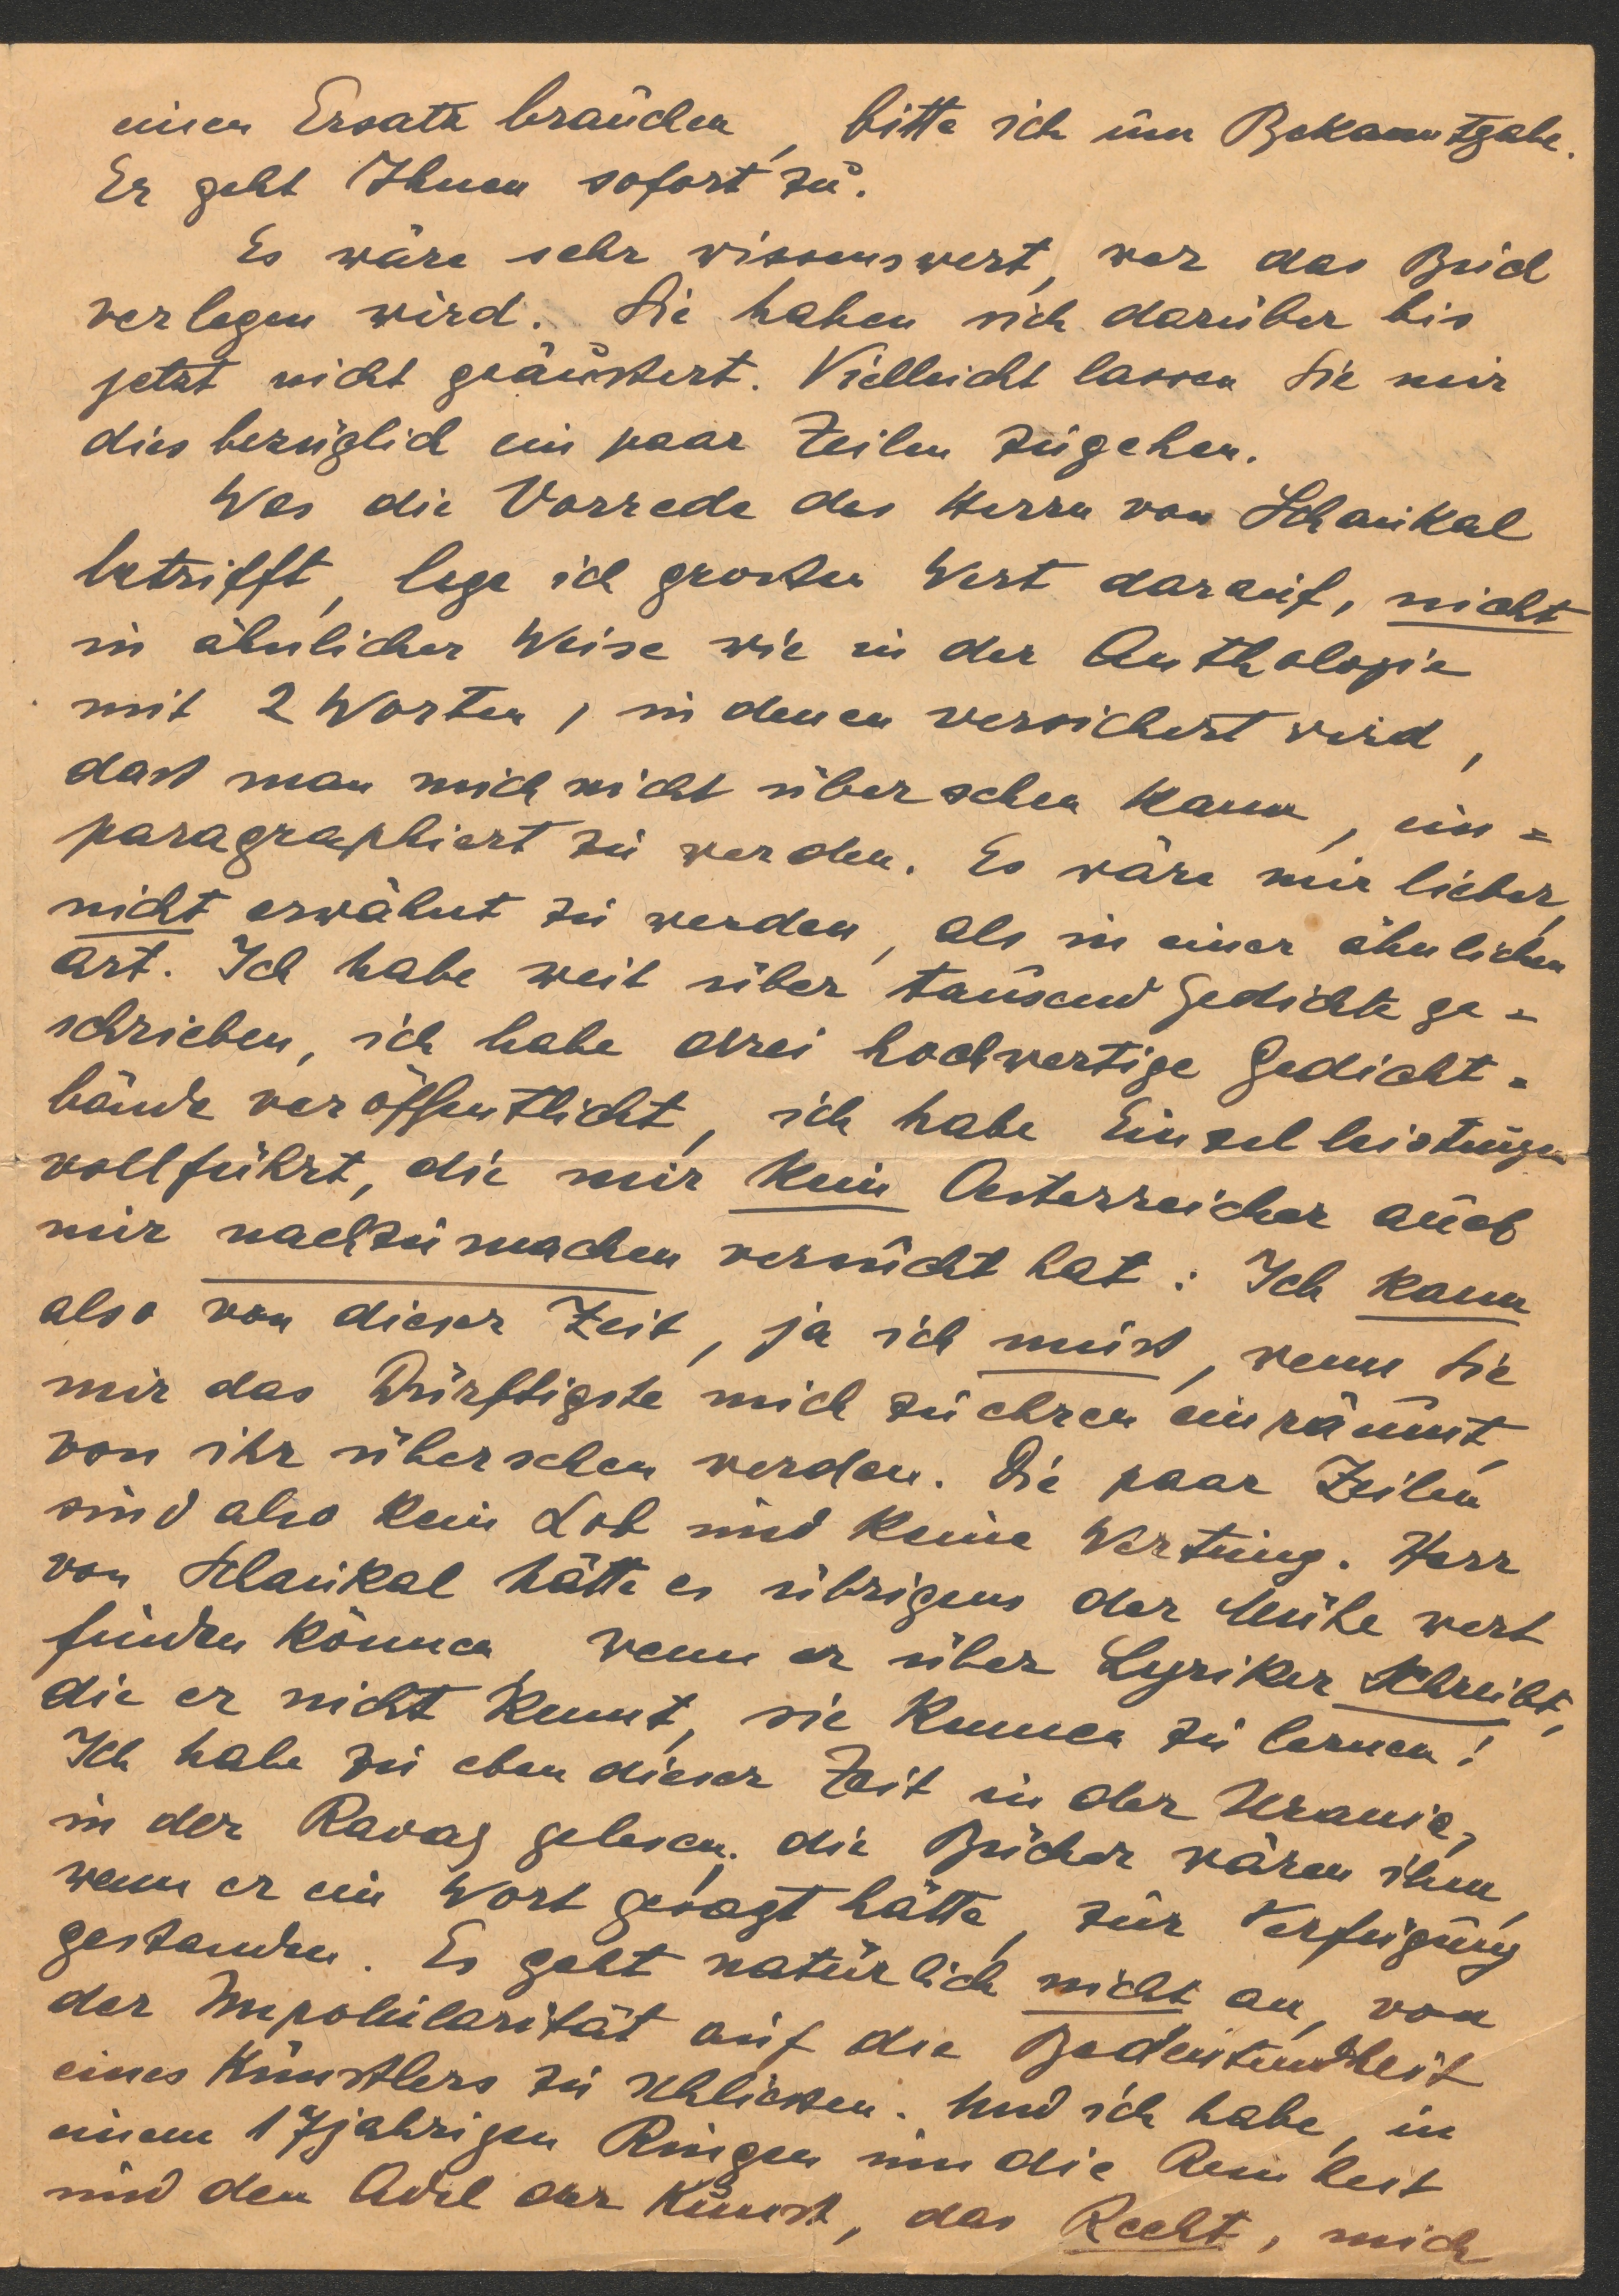 einen Ersatz brauchen, bitte ich um Bekanntgabe.
Er geht Ihnen sofort zu.
Es wäre sehr wissenswert, wer das Buch
verlegen wird. Sie haben sich darüber bis
jetzt nicht geäußert. Vielleicht lassen Sie mir
diesbezüglich ein paar Zeilen zugehen.
Was die Vorrede des Herrn von Schaukal
betrifft, lege ich großen Wert darauf, nicht
in ähnlicher Weise wie in der Anthologie
mit 2 Worten, in denen versichert wird,
daß man mich nicht übersehen kann, ein=
paragraphiert zu werden. Es wäre mir lieber,
nicht erwähnt zu werden, als in einer ähnlichen
Art. Ich habe weit über tausend Gedichte ge=
schrieben, ich habe drei hochwertige Gedicht=
bände veröffentlicht, ich habe Einzelleistungen
vollführt, die mir kein Oesterreicher auch
nur nachzumachen versucht hat: Ich kann
also von dieser Zeit, ja ich muß, wenn sie
mir das Dürftigste mich zu ehren einräumt,
von ihr übersehen werden. Die paar Zeilen
sind also kein Lob und keine Wertung. Herr
von Schaukal hätte es übrigens der Mühe wert
finden können, wenn er über Lyriker schreibt,
die er nicht kennt, sie kennen zu lernen!
Ich habe zu eben dieser Zeit in der Urania,
in der Ravag gelesen, die Bücher wären ihm,
wenn er ein Wort gesagt hätte, zur Verfügung
gestanden. Es geht natürlich nicht an, von
der Unpopularität auf die Bedeutendheit
eines Künstlers zu schließen. Und ich habe, in
einem 17jährigen Ringen um die Reinheit
und den Adel der Kunst, das Recht, mich